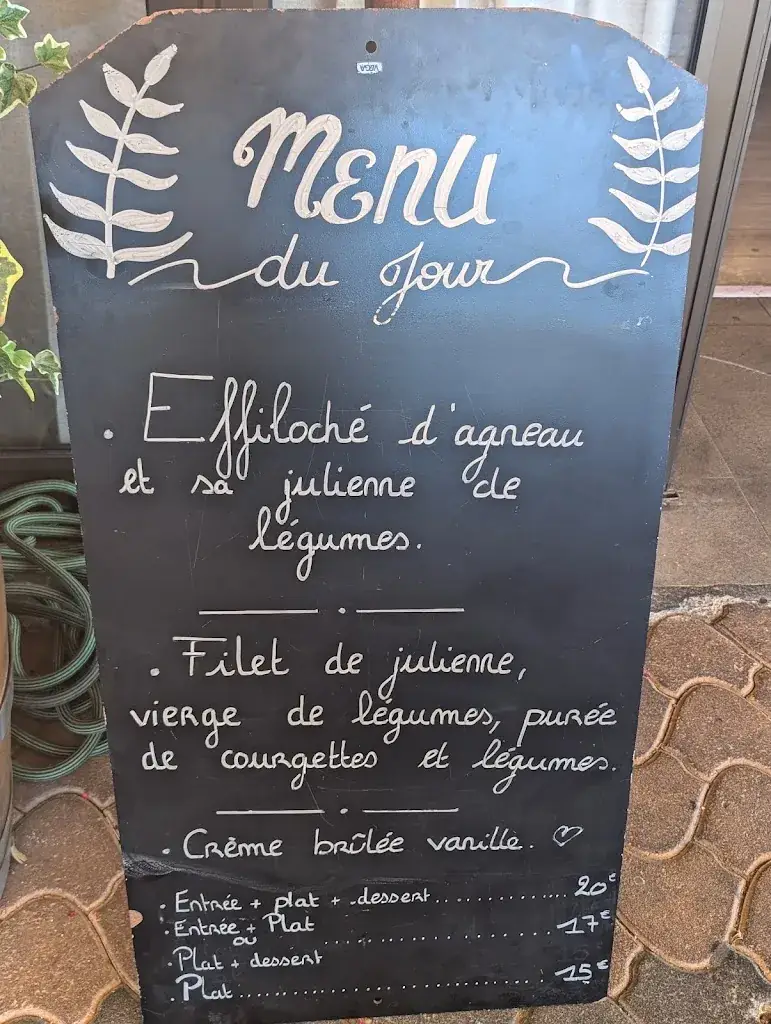 VEGA
Menu
du Jour
. Effiloché d'agneau
et sa julienne de
légumes.
. Filet de julienne,
vierge de légumes, purée
de courgettes et légumes.
. Crème brûlée vanille. ♡
. Entrée + plat + dessert.............. 20€
. Entrée + Plat
ou .................... 17€
. Plat + dessert
. Plat.............................. 15€